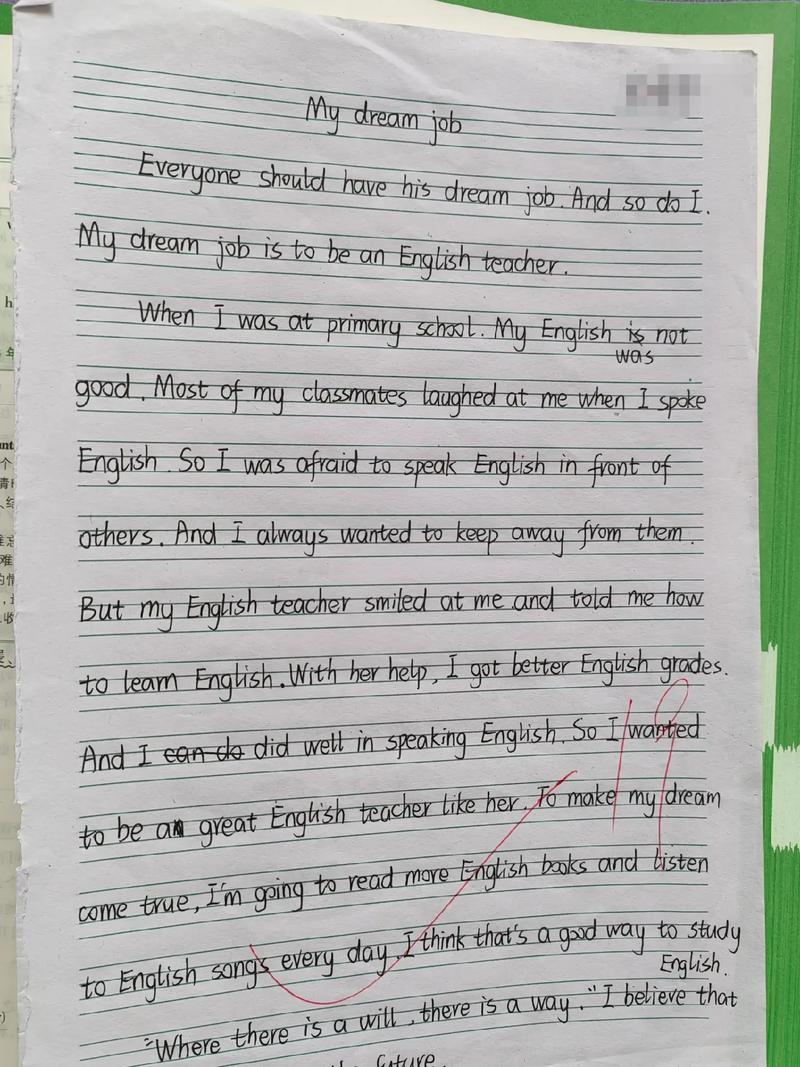 My dream job
Everyone should have his dream job. And so do I.
My dream job is to be an English teacher.
When I was at primary school. My English is not
was
good. Most of my classmates laughed at me when I spoke
English. So I was afraid to speak English in front of
others. And I always wanted to keep away from them.
But my English teacher smiled at me and told me how
to learn English. With her help, I got better English grades.
And I can do did well in speaking English. So I wanted
to be a great English teacher like her. To make my dream
come true, I'm going to read more English books and listen
to English songs every day. I think that's a good way to study
English.
"Where there is a will, there is a way." I believe that
the future.